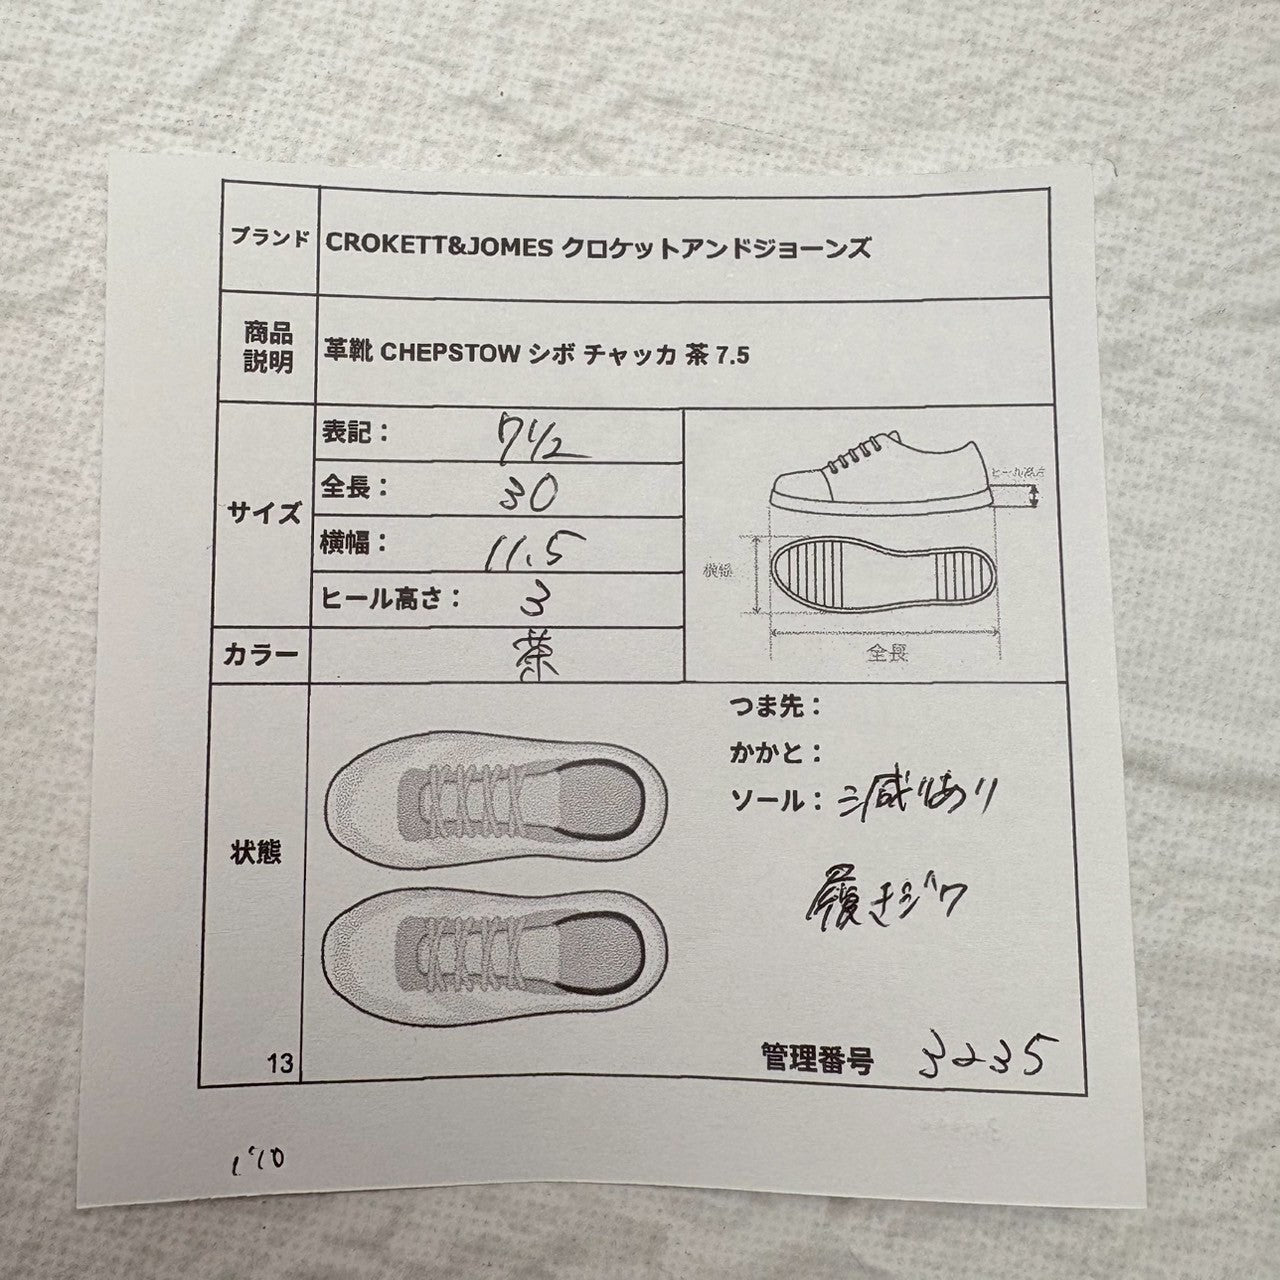 ブランド CROKETT&JOMES クロケットアンドジョーンズ
商品
説明
革靴 CHEPSTOW シボ チャッカ 茶 7.5
サイズ
表記： 7 1/2
全長： 30
横幅： 11.5
ヒール高さ： 3
ヒール高さ
横幅
全長
カラー 茶
状態
つま先：
かかと：
ソール： 減りあり
履きジワ
13
管理番号 3235